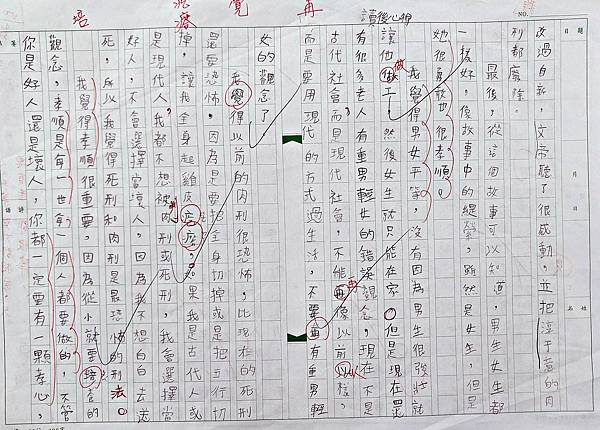 再
覺
疙瘩
培
讀後心得
NO.
日期
改過自新，文帝聽了很感動，並把淳于意的肉
刑都廢除。
最後，從這個故事可以知道，男生女生都
一樣好，像故事中的緹縈，雖然是女生，但是
她很勇敢也很孝順。
我覺得男女平等，沒有因為男生很強壯就
讓他做工，然後女生就只能在家。但是現在還
有很多老人有重男輕女的錯誤觀念，現在不是
古代社會，而是現代社會，不能再像以前一樣，
而是要用現代的方式過生活，不要再有重男輕
女的觀念了
我覺得以前的肉刑很恐怖，比現在的死刑
還要恐怖，因為是要把全身切掉或是把五行切
掉，讓我全身起雞皮疙瘩。如果我是古代人或
是現代人，我都不想被肉刑或死刑，我會選擇當
好人，不會選擇當壞人，因為我不想白白去送
死，所以我覺得死刑和肉刑是最恐怖的刑法。
我覺得孝順很重要，因為從小就要培養的
觀念，孝順是每一世每一個人都要做的，不管
你是好人還是壞人，你都一定要有一顆孝心，